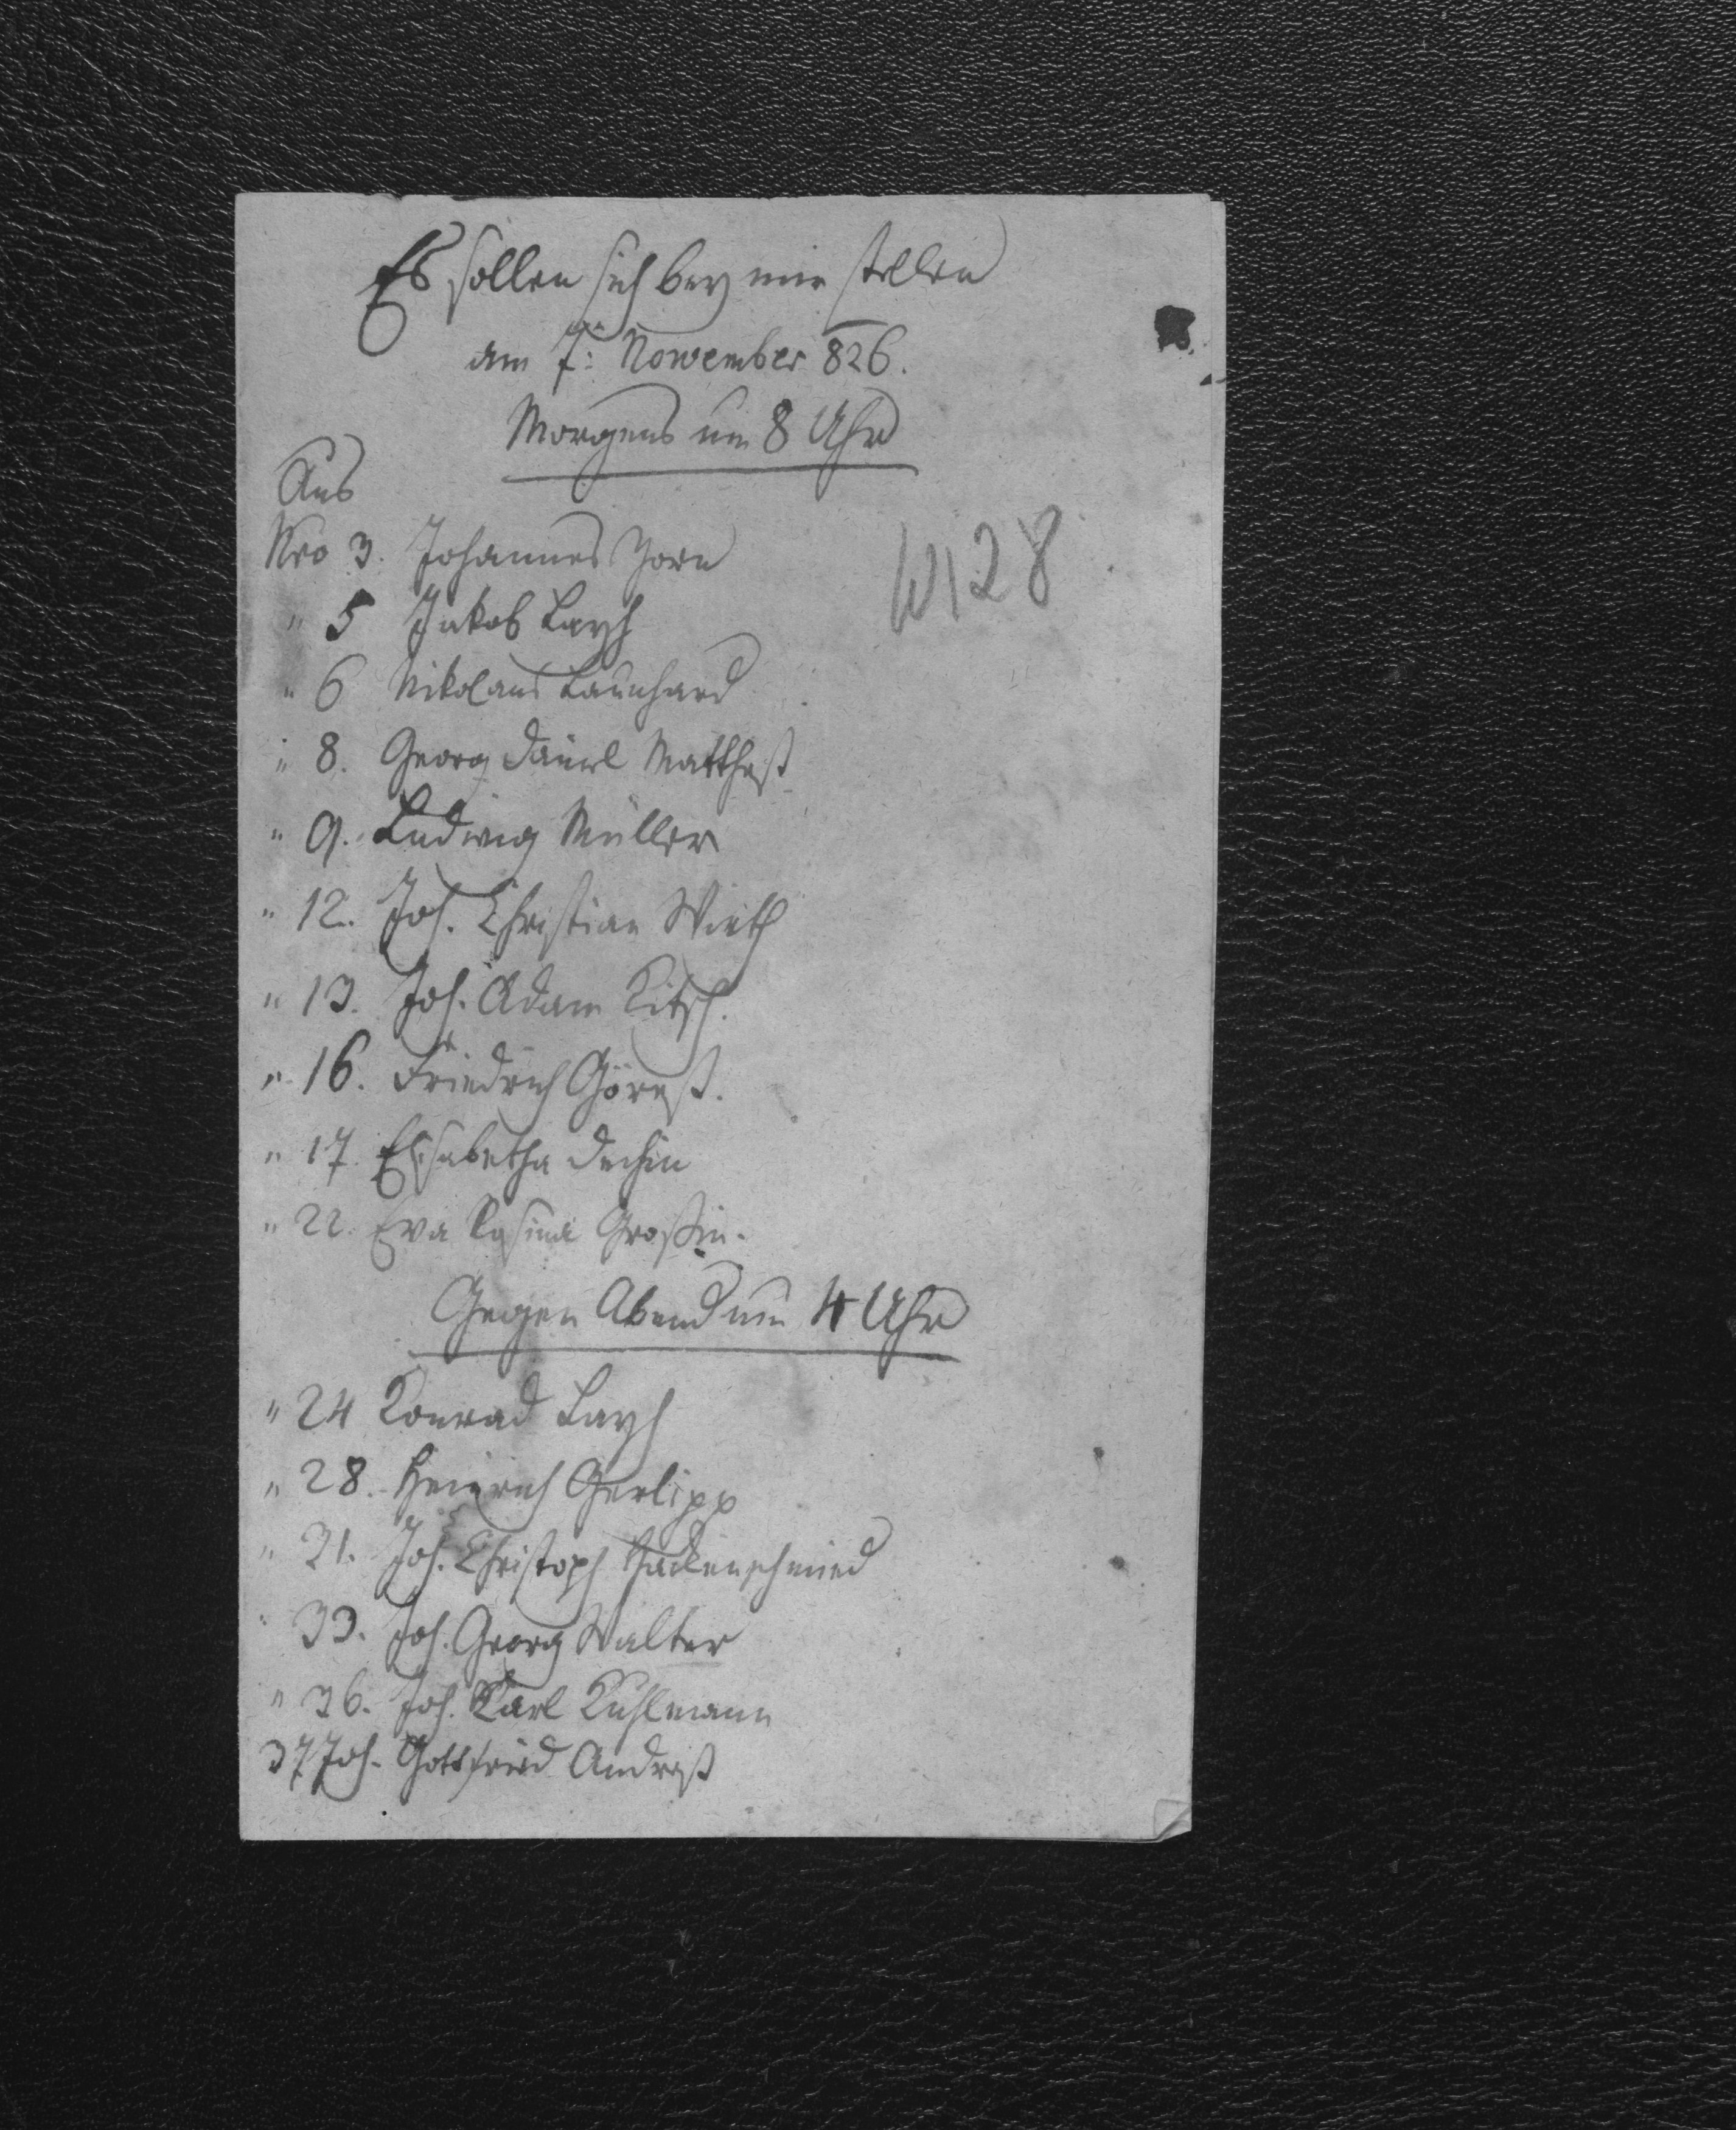 Es sollen sich bey mir stellen
am 7: November 826.
Morgens um 8 Uhr
Aus
Nro 3. Johannes Zorn
W128
" 5 Jakob Layh
" 6 Nikolaus Launhard
" 8. Georg Daniel Mattheß
" 9. Ludwig Müller
" 12. Joh. Christian Wirth
" 13. Joh. Adam Kitsch.
" 16. Friedrich Göreß.
" 17. Elisabetha
" 22. Eva Rosina Großin.
Gegen Abend um 4 Uhr
" 24 Konrad Layh
" 28. Heinrich Gerlipp
" 31. Joh. Christoph Hackenschmied
" 33. Joh. Georg Walter
" 36. Joh. Karl Kuhlmann
37 Joh. Gottfried Andreß